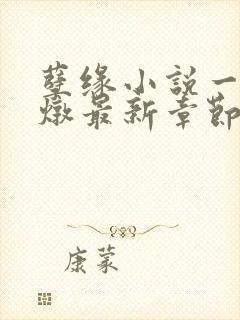 孽缘小説一
燉最新章節
康蒙